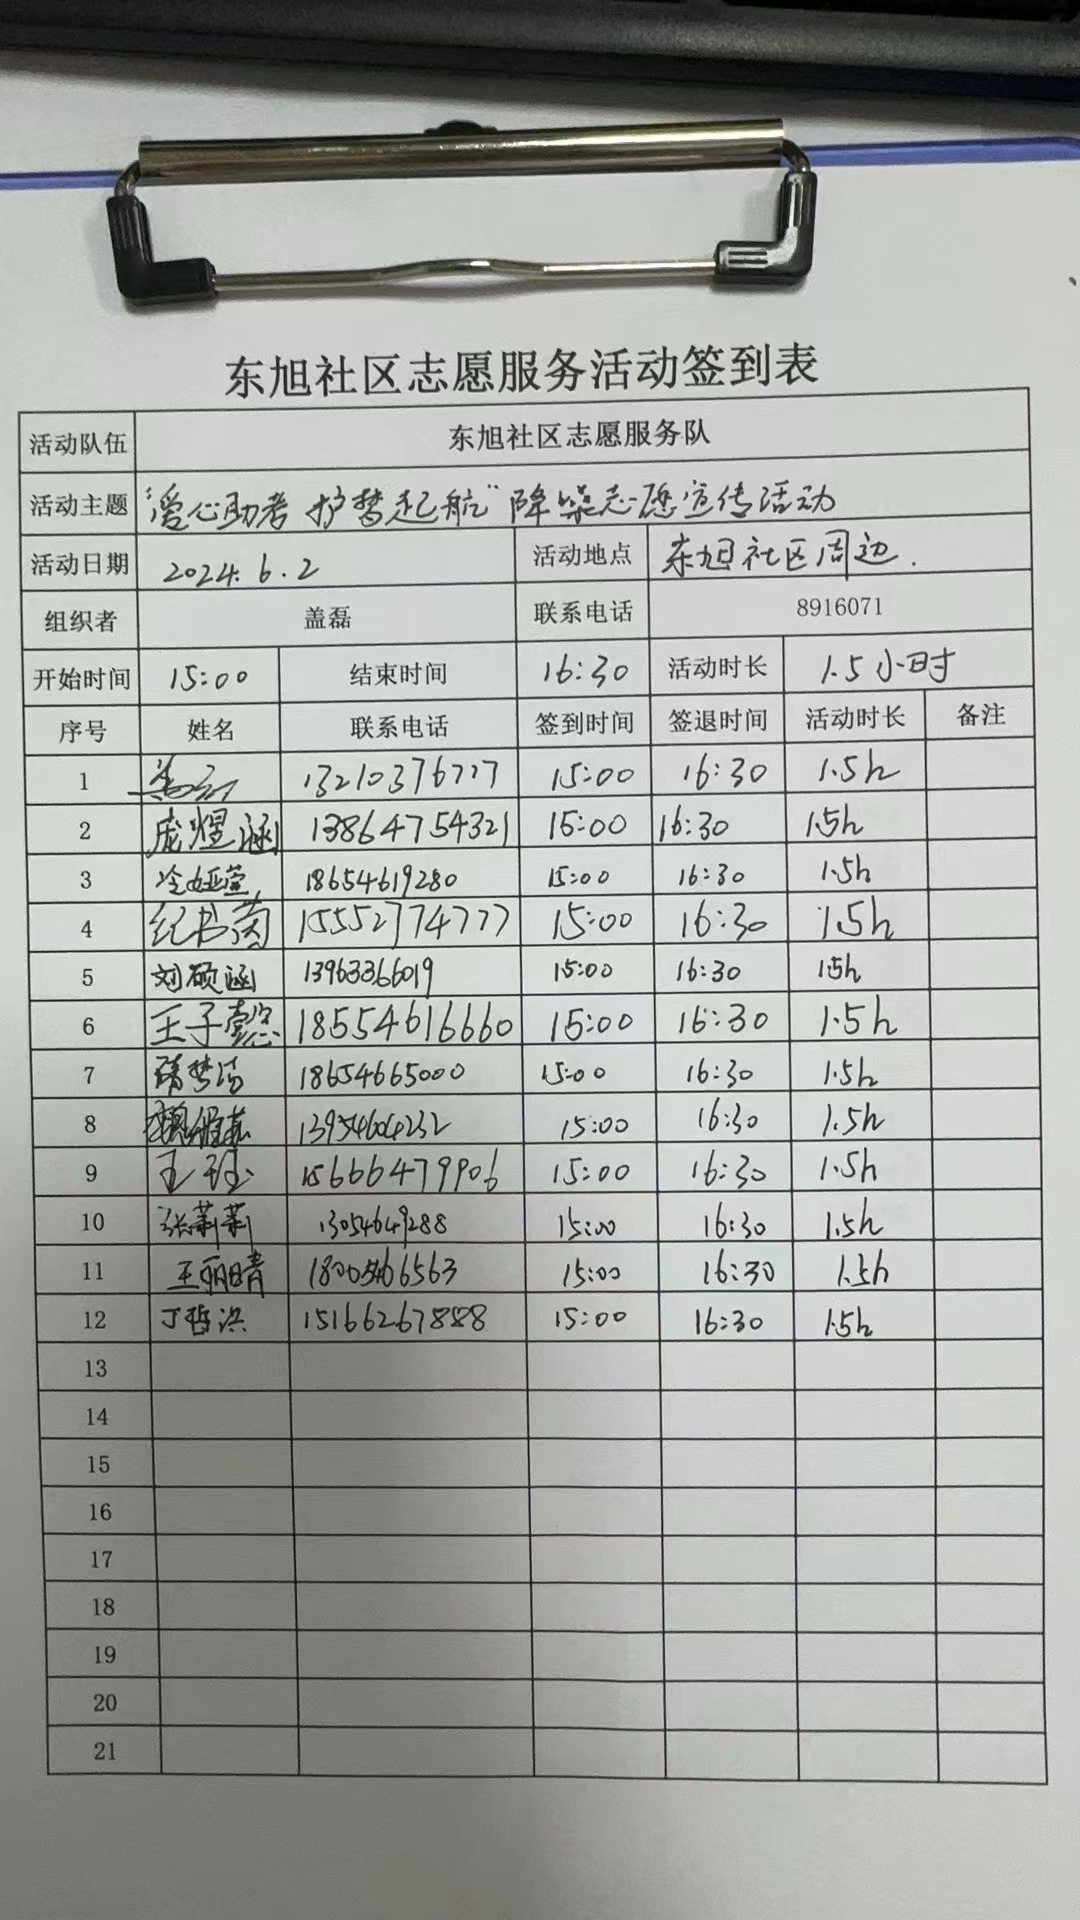 东旭社区志愿服务活动签到表
活动队伍 东旭社区志愿服务队
活动主题 “爱心助考 护梦起航”降噪志愿宣传活动
活动日期 2024.6.2 活动地点 东旭社区周边.
组织者 盖磊 联系电话 8916071
开始时间 15:00 结束时间 16:30 活动时长 1.5小时
序号 姓名 联系电话 签到时间 签退时间 活动时长 备注
1 13210376777 15:00 16:30 1.5h
2 庞煜涵 13864754321 15:00 16:30 1.5h
3 冷娅萱 18654619280 15:00 16:30 1.5h
4 纪书茵 15552774777 15:00 16:30 1.5h
5 刘硕涵 13963366019 15:00 16:30 1.5h
6 王子懿 18554616660 15:00 16:30 1.5h
7 18654665000 15:00 16:30 1.5h
8 13954604232 15:00 16:30 1.5h
9 王珏 15666479906 15:00 16:30 1.5h
10 张莉莉 13054649288 15:00 16:30 1.5h
11 王丽晴 15:00 16:30 1.5h
12 丁哲洪 15166267888 15:00 16:30 1.5h
13
14
15
16
17
18
19
20
21